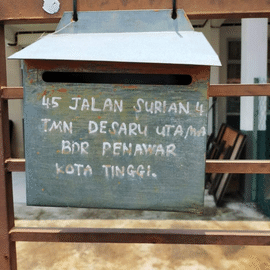 45 JALAN SURIAN 4
TMN DESARU UTAMA
BDR PENAWAR
KOTA TINGGI.